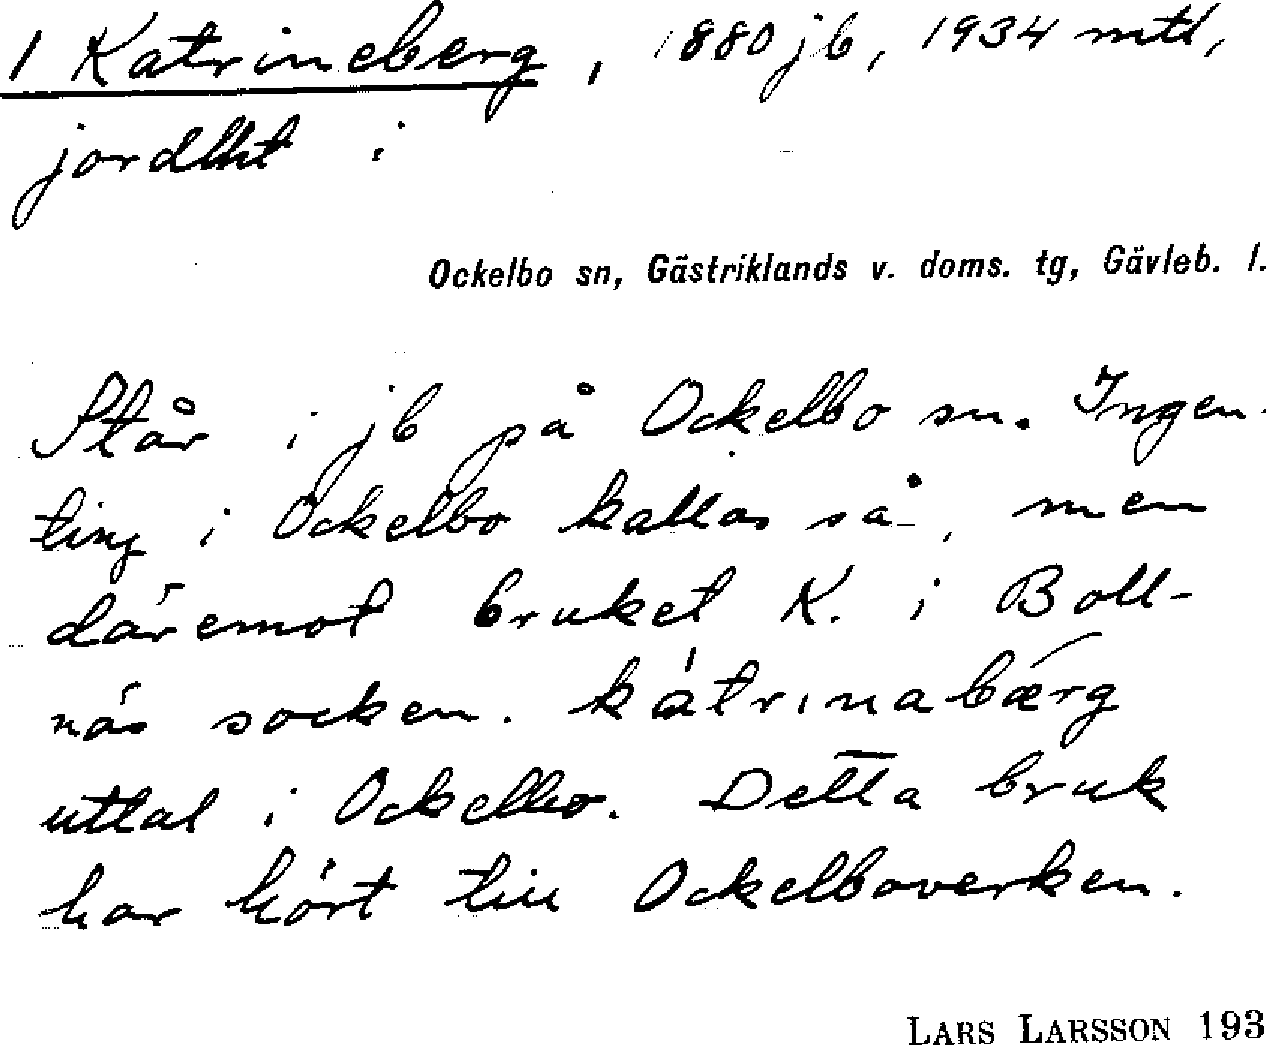 1 Katrineberg, 1880 jb, 1934 mtl,
jordlht i
Ockelbo sn, Gästriklands v. doms. tg, Gävleb. l.
Står i jb på Ockelbo sn. Ingen-
ting i Ockelbo kallas så, men
däremot bruket K. i Boll-
näs socken. kátrınabærg
uttal i Ockelbo. Detta bruk
har hört till Ockelboverken.
LARS LARSSON 193